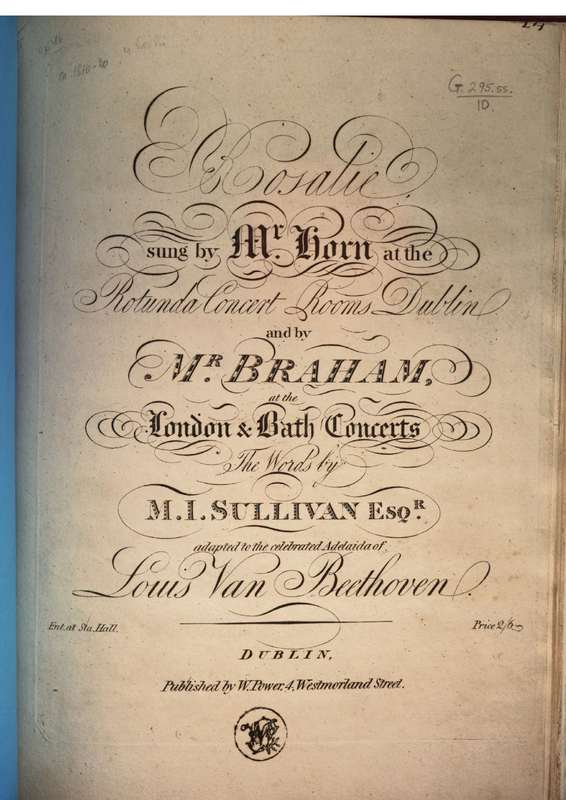 G. 295.ss.
10.
Rosalie
sung by Mr. Horn at the
Rotunda Concert Rooms Dublin
and by
MR. BRAHAM,
at the
London & Bath Concerts
The Words by
M.I. SULLIVAN ESQR.
adapted to the celebrated Adelaida of
Louis Van Beethoven.
Ent. at Sta. Hall.
Price 2/6
DUBLIN,
Published by W. Power, 4, Westmorland Street.